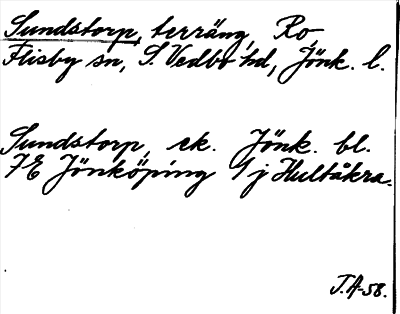 Sundstorp, terräng, Ro,
Flisby sn, S. Vedbo hd, Jönk. l.
Sundstorp, ek. Jönk. bl.
7E Jönköping 9j Hultåkra.
J.A-58.